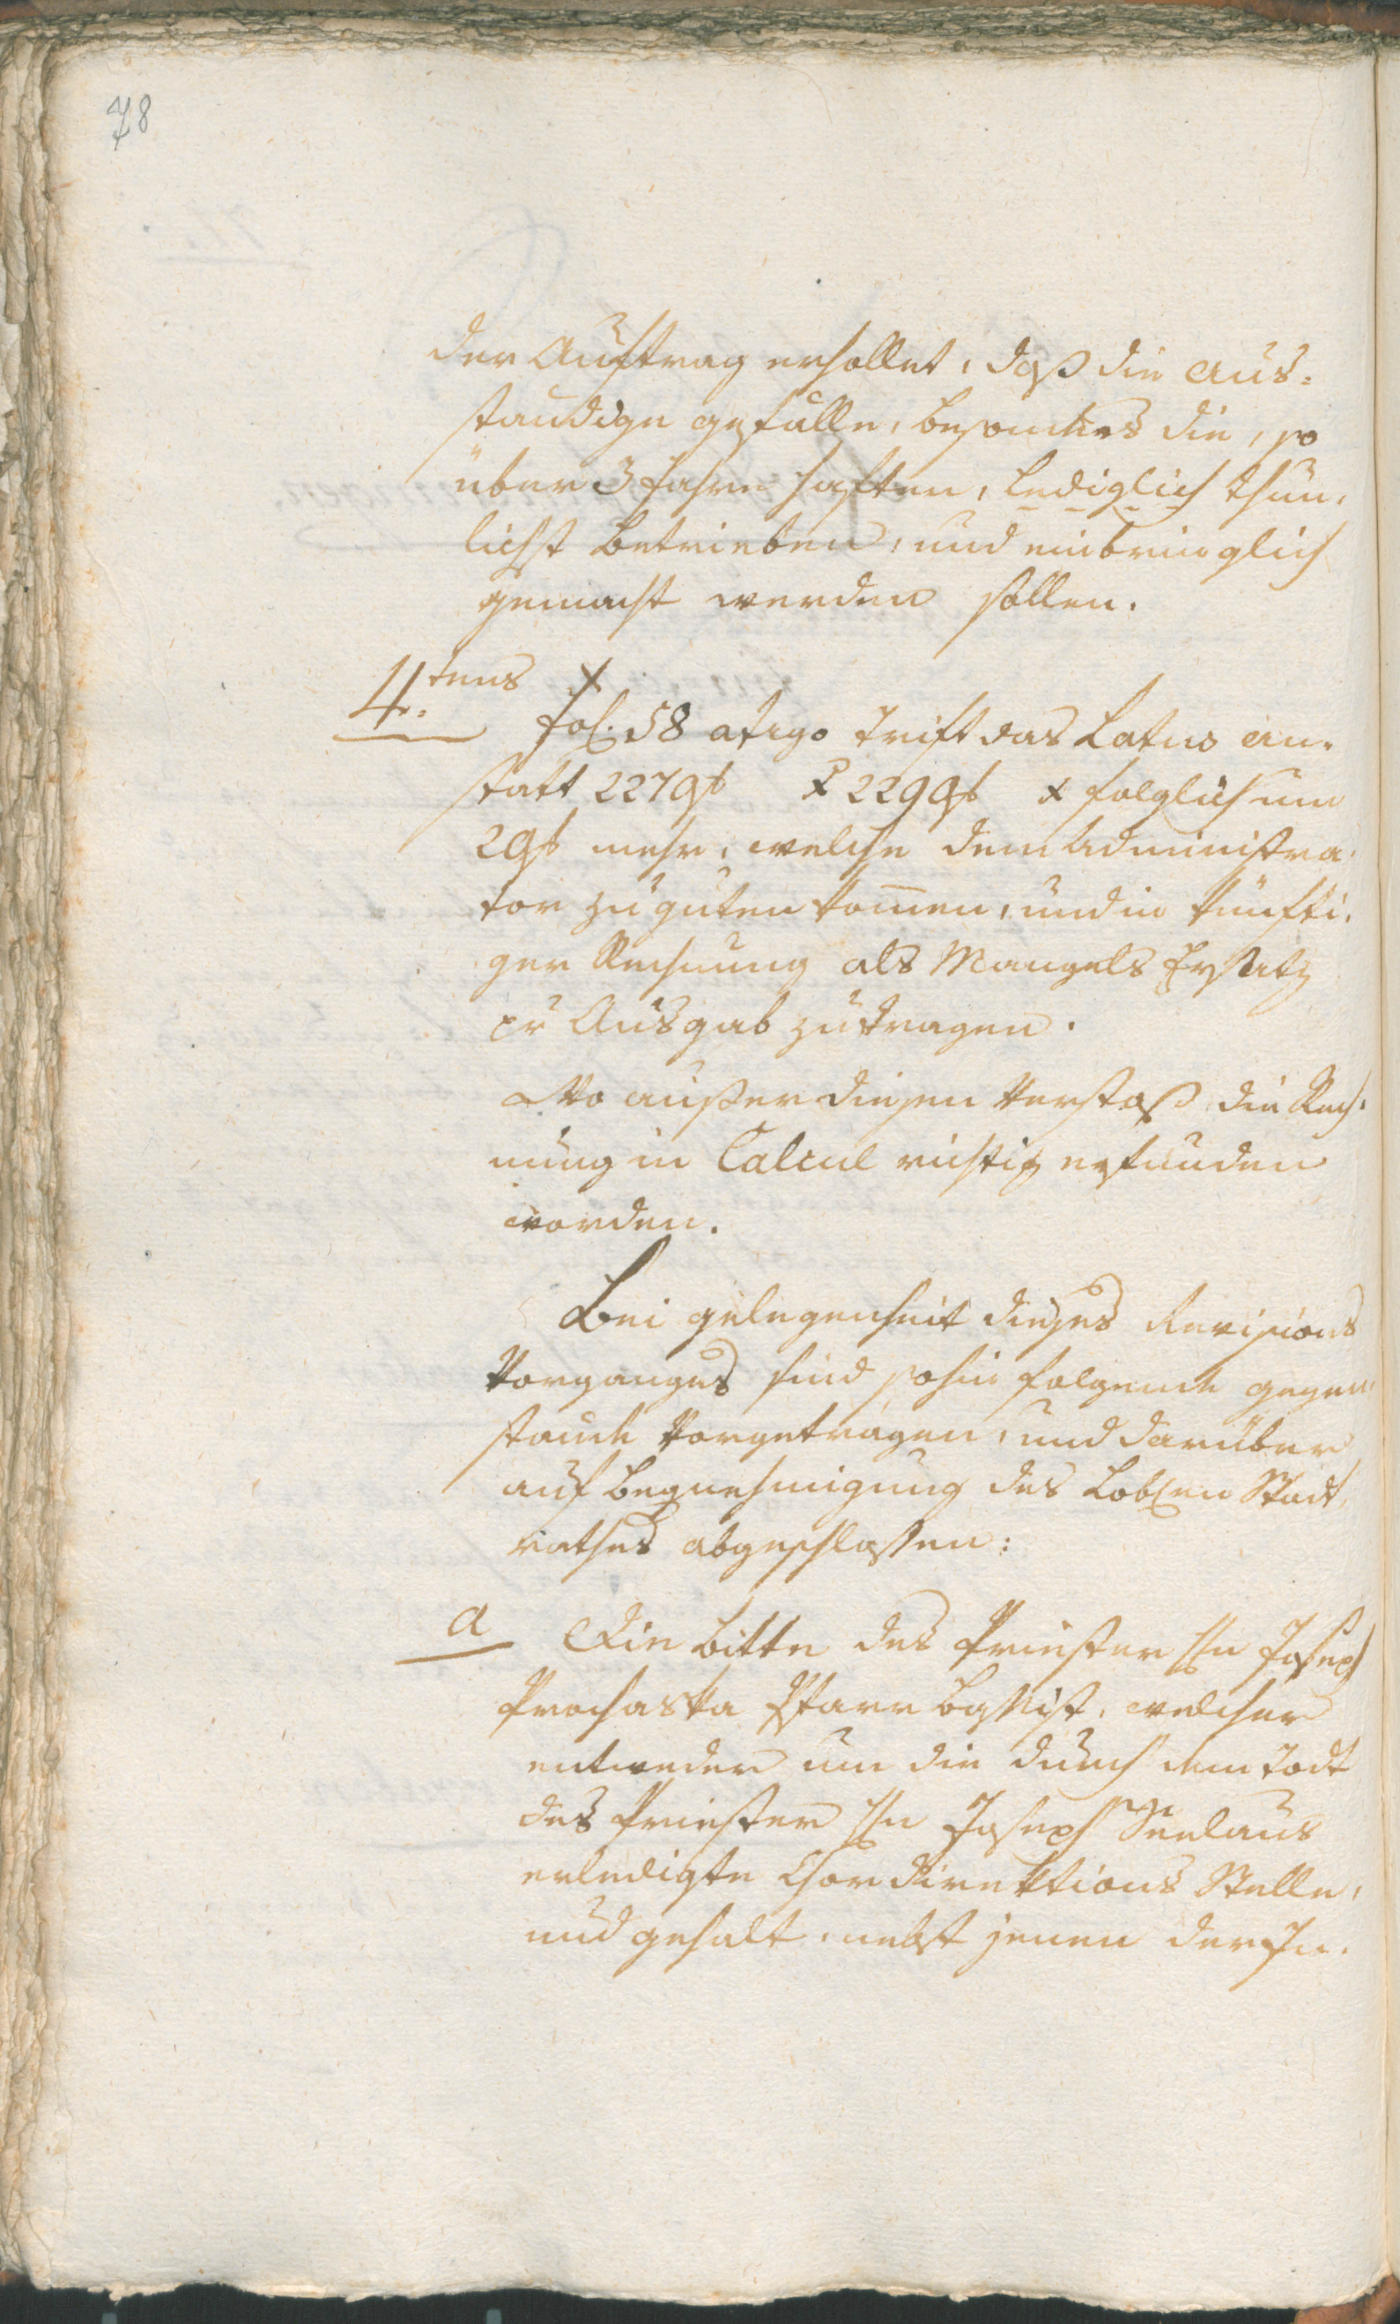 78
der Auftrag erhollet, daß die aus-
ständige gefälle, besonders die, so
über 3 Jahre haften, lediglich thun-
lichst betrieben, und einbringlich
gemacht werden sollen.
4.tens fol. 58 atergo trift das Latus an-
statt 2279f x 2299f x folglich um
2gf mehr, welche dem Administra-
tor zu guten kom̄en, und in künfti-
ger Rechnung als Mangels Ersatz
pr Ausgab zu tragen.
Wo außer diesen Verstoß die Rech-
nung in Calcul richtig erfunden
worden.
Bei gelegenheit dieses Revisions
Vorganges sind sohin folgende gegen-
stände vorgetragen, und darüber
auf begnehmigung des Loblen Stadt
rathes abgeschlossen:
a Die bitte des Priester Hn Joseph
Prochaska Pfarr , welcher
entweder um die durch dem todt
des Priester Hn Joseph Seelaus
erledigte Chordirektions Stelle,
und gehalt, nebst jenen der In-